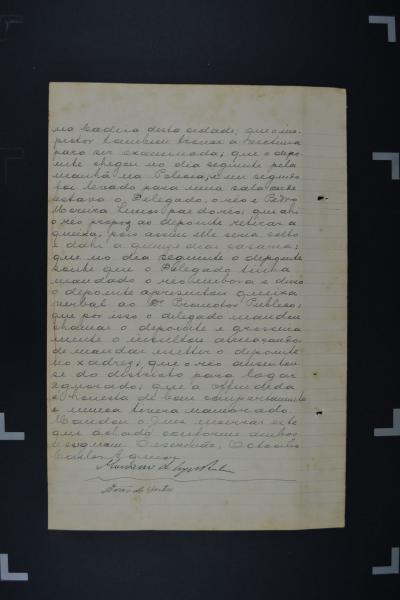 na Cadeia desta cidade; que o ins-
pector tambem trouxe a
para ser examinada; que o depo-
ente chegou no dia seguinte pela
manhã na Policia; e em seguida
foi levado para uma sala onde
estava o Delegado, o reo e Pedro
Moreira Lemos pae do reo; que ahi
o reo propoz ao depoente retirar a
queixa, pois assim elle seria solto
e dahi a quinze dias casaria;
que no dia seguinte o depoente
soube que o Delegado tinha
mandado o reo embora e disso
o depoente apresentou queixa
verbal ao Dr. Promotor Publico;
que por isso o delegado mandou
chamar o depoente e grosseira
mente o insultou ameaçando
de mandar metter o depoente
no xadrez; que o reo ausentou
se do districto para logar
ignorado; que a offendida
é honesta de bom comportamento
e nunca tivera namorado.
Mandou o Juiz encerrar este
que achado conforme ambos
assignam. O escrivão,

João de